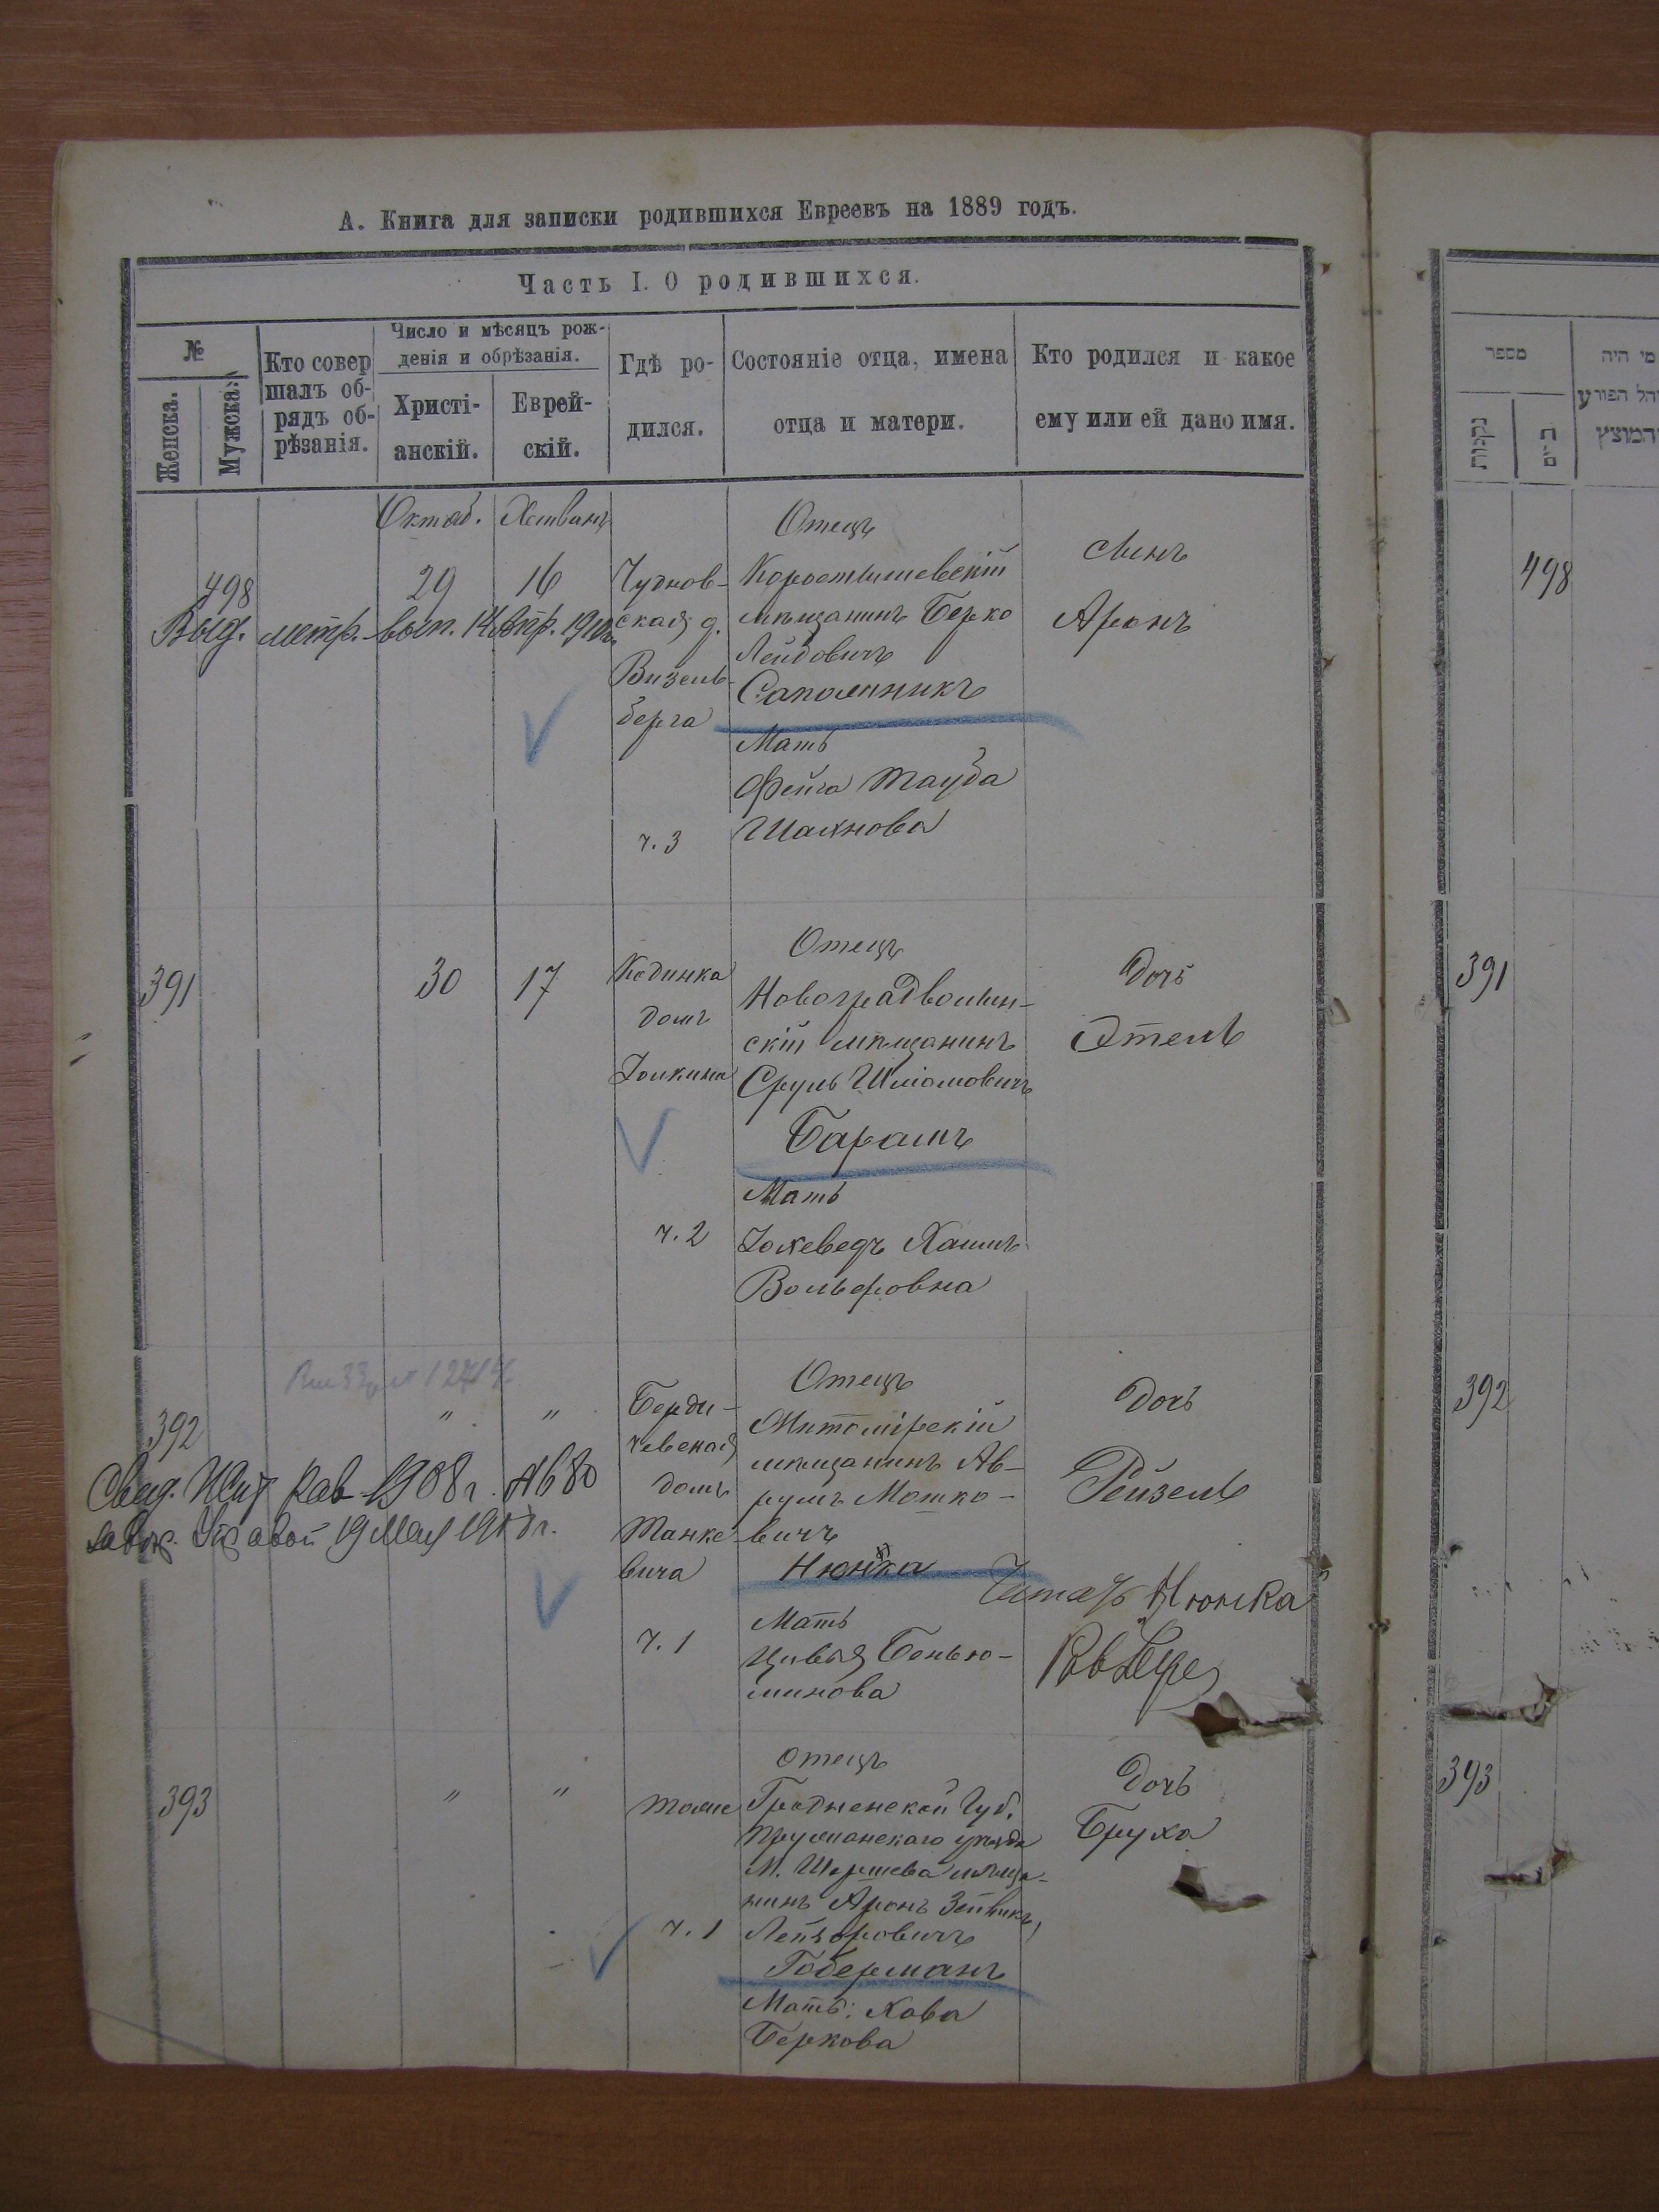 А. Книга для записки родившихся Евреевъ на 1889 годъ.
Часть I. О родившихся.
№
Женска.
Мужска.
Кто совер
шалъ об-
рядъ об-
рѣзанія.
Число и мѣсяцъ рож-
денія и обрѣзанія.
Христі-
анскій.
Еврей-
скій.
Гдѣ ро-
дился.
Состояніе отца, имена
отца и матери.
Кто родился и какое
ему или ей дано имя.
Октяб.
Хешванъ
498
29
16
Выд. метр. вып.
Чуднов-
ская д.
Визель-
берга
ч. 3
Отецъ
Коростышевскій
мѣщанинъ Берко
Лейбовичъ
Сапожникъ
Мать
Фейга Тауба
Шахнова
Сынъ
Аронъ
391
30
17
Кодинка
домъ
ч. 2
Отецъ
Новоградволын-
скій мѣщанинъ
Сруль Шліомовичъ
Барамъ
Мать
Іохеведъ
Вольфовна
Дочь
Этель
392
"
"
Свид. Жит. Рав. 1908 г.
19 Мая
Берди-
чевская
домъ
Танке-
вича
ч. 1
Отецъ
Житомірскій
мѣщанинъ Ав-
румъ Мошко-
вичъ
Нюнка
Мать
Цивья Бенью-
минова
Дочь
Рейзель
Читать Нюнка
393
"
"
тоже
ч. 1
Отецъ
Гродненской Губ.
Пружанскаго уѣзда
М. Шерешева мѣща-
нинъ Аронъ
Лейзоровичъ
Гоберманъ
Мать: Хава
Беркова
Дочь
Бруха
מספר
נקבות
מי היה
498
391
392
393